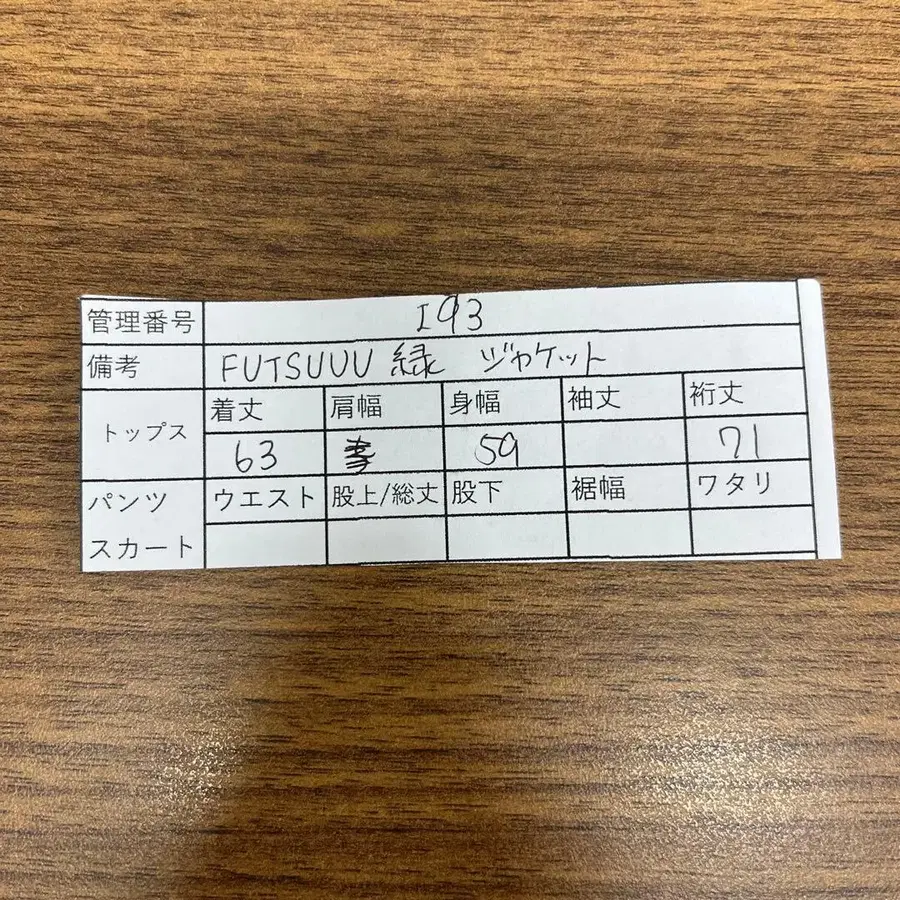 管理番号 I93
備考 FUTSUUU 緑 ジャケット
トップス 着丈 肩幅 身幅 袖丈 裄丈
63 59 71
パンツ ウエスト 股上/総丈 股下 裾幅 ワタリ
スカート